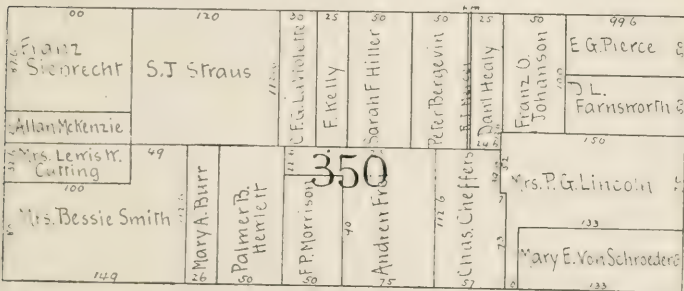 00
120
30
25
50
50
25
50
99 6
Franz
Siebrecht
S.J Straus
C.F.G. LaViolette
F. Kelly
Sarah F Hiller
Peter Bergevin
Danl Healy
Franz O.
Johanson
E G. Pierce
J L.
Farnsworth
Allan McKenzie
Mrs. Lewis W.
Cutting
49
100
Mrs. Bessie Smith
149
Mary A. Burr
26
Palmer B.
Hewlett
50
F P. Morrison
50
350
40
Andrien
75
112 6
Chas. Cheffers
57
150
Mrs. P. G. Lincoln
133
Mary E. Von Schroeder
133